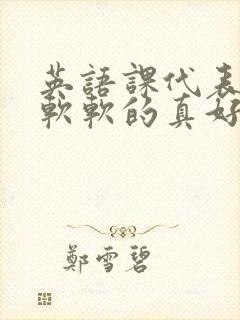 英語課代表
軟軟的真好
鄭雪碧